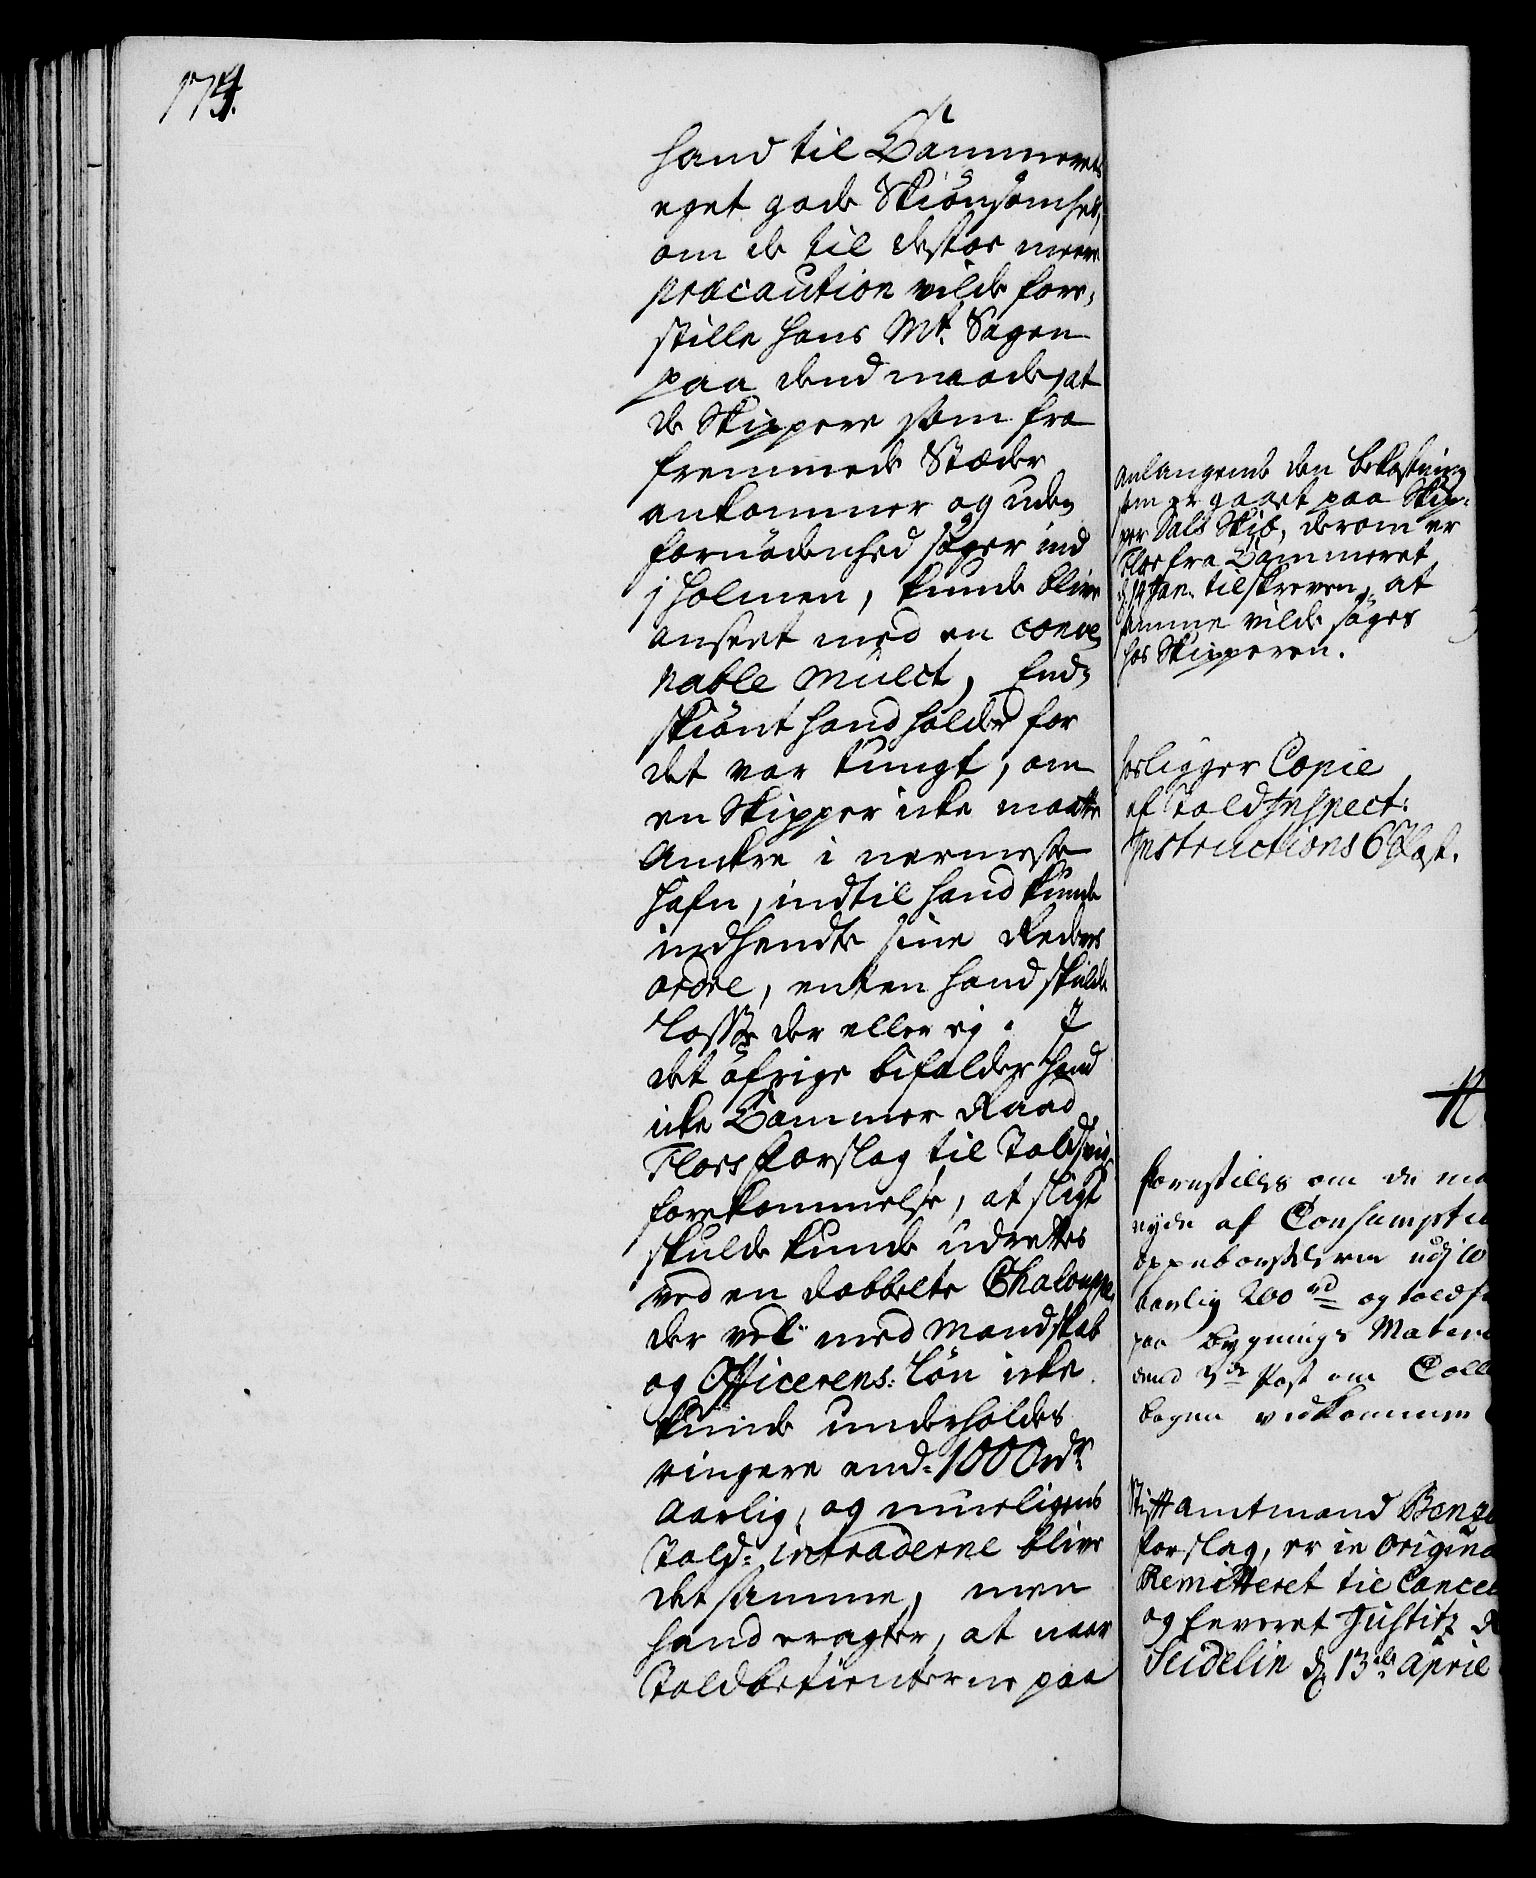 174.
hand til Cammerets
eget gode Skiönsomhed,
om de til desto meere
præcaution vilde fore-
stille Hans Mt. Sagen
paa dend maade, at
de Skippere som fra
fremmede Stæder
ankommer og uden
fornödenhed söger ind
i Holmen, kunde blive
anseet med en conve-
nable Mulct, End-
skiönt hand holder for
det var tungt, om
en Skipper icke maatte
Anckre i nermeste
Hafn, indtil hand kunde
indhendte sine Reders
ordre, enten hand skulde
Losse der eller ej. I
det öfrige bifalder hand
icke Cammer Raad
Flors forslag til Toldsvig
forekommelse, at sligt
skulde kunde udrettes
ved en dobbelte Chalouppe,
der vel med Mandskab
og Officerens Lön icke
kunde underholdes
ringere end 1000 rdr
Aarlig, og mueligens
Told-intraderne blive
det samme, men
hand eragter, at naar
Toldbetienterne paa
anlangende den bekostning
som er gaaet paa Skip-
per Dals Skib, derom er
Flor fra Cammeret
d. 14 Jan. tilskreven, at
samme vilde söges
hos Skipperen.
hosligger Copie
af Told Inspect:
Instructions 6 Post.
forestilles om de
nyde af Consumptio
aarlig 200 rd og told
paa bygnings Mater
dend 3de Post om
bogen vedkommen
Stift amtmand Benze
forslag, er in origina
Remitteret til Cancel
og leveret Justitz
Seidelin d. 13de April